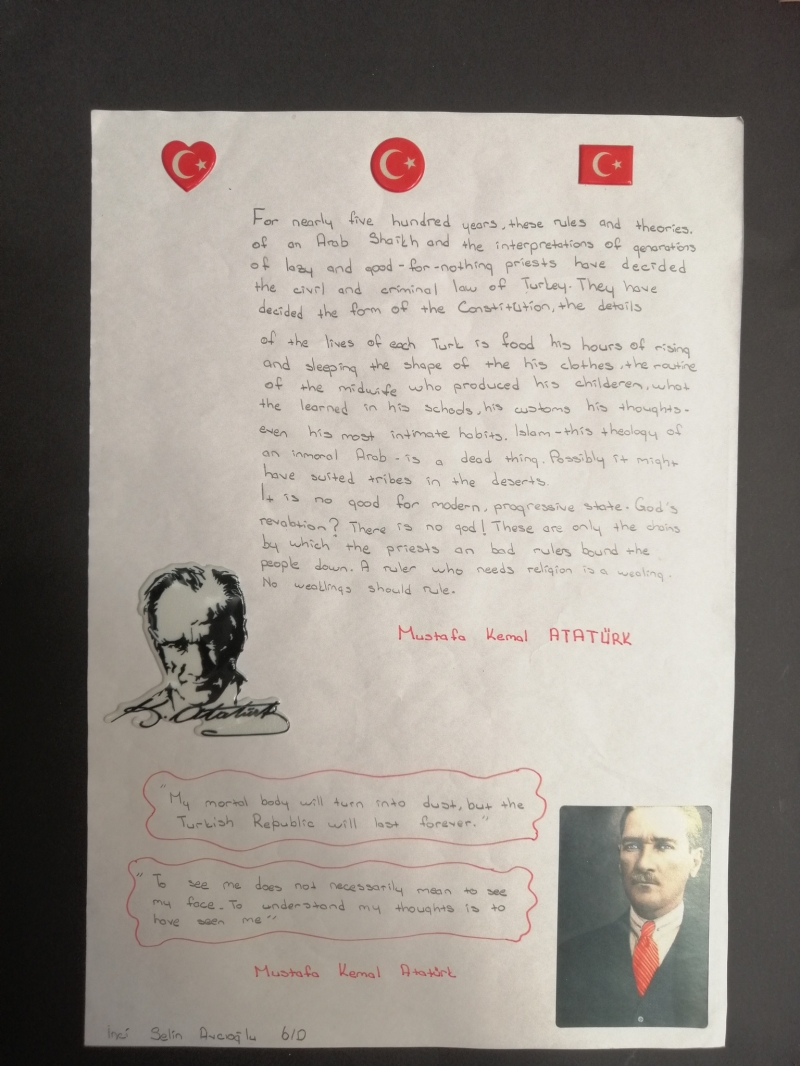 For nearly five hundred years, these rules and theories.
of an Arab Shaikh and the interpretations of generations
of lazy and good-for-nothing priests have decided
the civil and criminal law of Turkey. They have
decided the form of the Constitution, the details
of the lives of each Turk is food his hours of rising
and sleeping the shape of the his clothes, the routine
of the midwife who produced his childeren, what
the learned in his schools, his customs his thoughts-
even his most intimate habits. Islam-this theology of
an inmoral Arab - is a dead thing. Possibly it might
have suited tribes in the deserts.
It is no good for modern, progressive state. God's
revabtion? There is no god! These are only the chains
by which the priests an bad rulers bound the
people down. A ruler who needs religion is a wealing.
No weaklings should rule.
Mustafa Kemal ATATÜRK
K. Atatürk
"My mortal body will turn into dust, but the
Turkish Republic will last forever."
"To see me does not necessarily mean to see
my face. To understand my thoughts is to
have seen me"
Mustafa Kemal Atatürk
İnci Selin Avcıoğlu 6/D